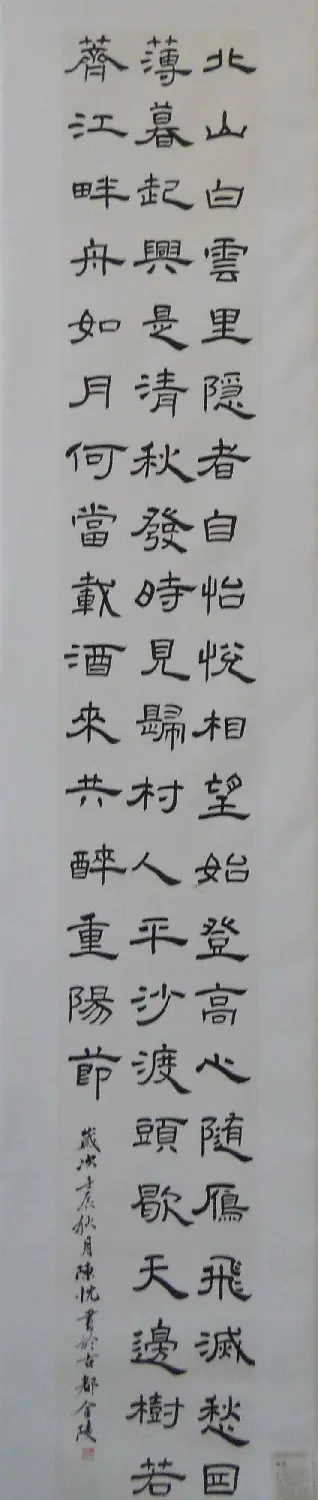 北山白雲里隐者自怡悅相望始登高心随鴈飛滅愁回
薄暮起興是清秋發時見歸村人平沙渡頭歇天邊樹若
薺江畔舟如月何當載酒來共醉重陽節
歲次壬辰秋月陳書於古都金陵